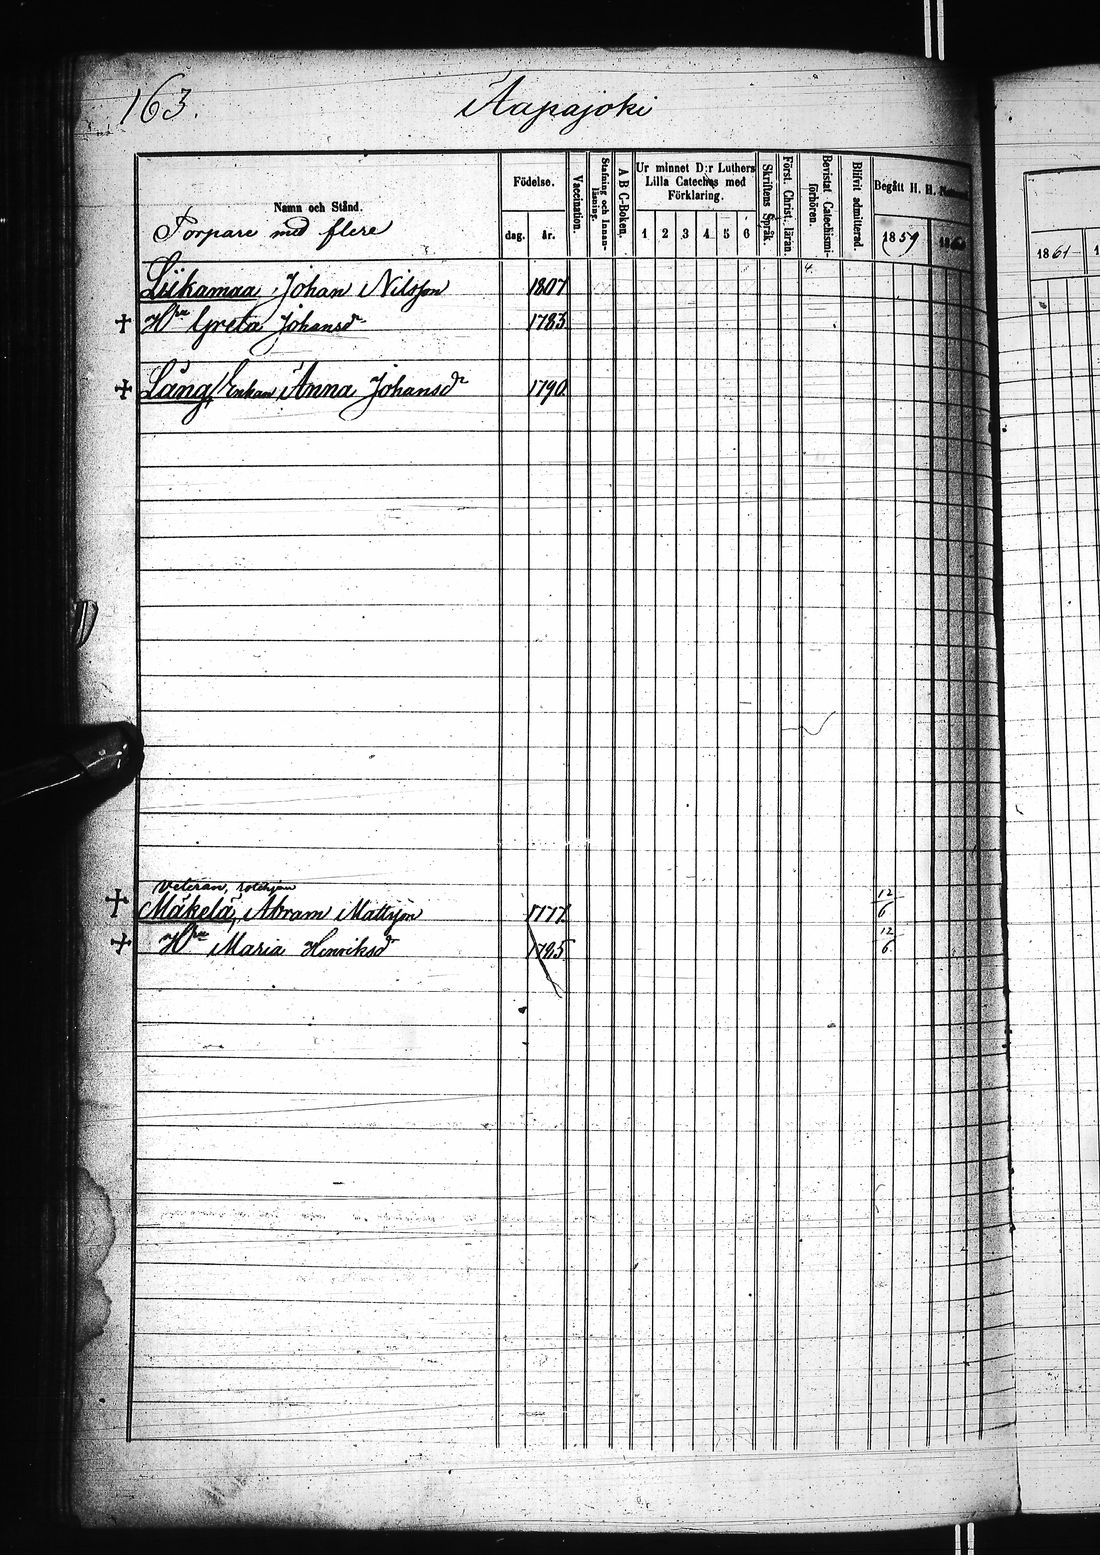 163.
Aapajoki
Namn och Stånd.
Torpare med flere
Födelse.
dag. år.
Vaccination.
Stafning och Innanläsning.
A B C-Boken.
Ur minnet D:r Luthers Lilla Cateches med Förklaring.
1 2 3 4 5 6
Skriftens Språk.
Först. Christ. läran.
Bevistat Catechismiförhören.
Blifvit admitterad.
Begått H. H.
1859
1861
Liikamaa Johan Nilsson 1807
+ Hru Greta Johansdr 1783
+ Lång, Enkan Anna Johansdr 1790
Veteran,
+ Mäkelä, Abram Mattsson 1777 12/6
+ Hru Maria Henriksdr 1795 12/6